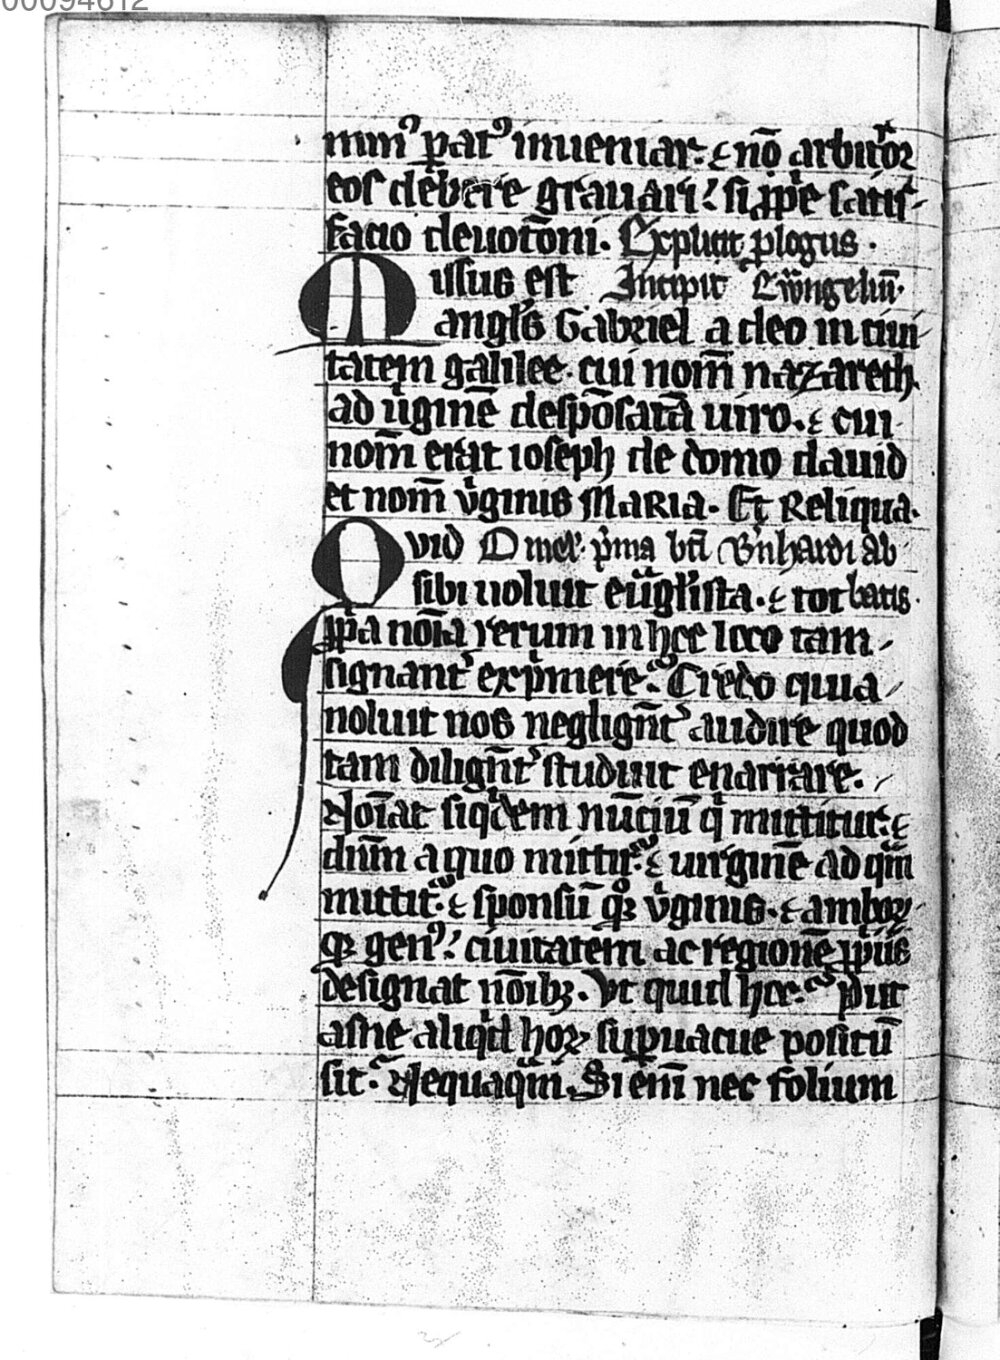 00094612
min⁹ parat⁹ inueniar. ⁊ nō arbitror
eos debere grauari! si ꝓprie satis-
facio deuotōni. Explicit ꝓlogus.
Missus est Incipit Ewngeliū.
angl̄s Gabriel a deo in ciui-
tatem galilee. cui nom̄ nazareth.
ad uiginē despōsatā uiro. ⁊ cui
nom̄ erat ioseph de domo dauid
et nom̄ v̓ginis MaRIa. Et Reliqua.
Quid Omel. p̓ma bt̄i B̓nhardi ab
sibi uoluit euāgl̓ista. ⁊ tot batis.
ꝓpa nōia rerum in hoc loco tam
signant̓ exp̓mere. Credo quia
noluit nos negligēt̓ audire quod
tam diligēt̓ studuit enarrare.
Noīat siqdem nūciū q̓ mittitur. ⁊
dnm̄ a quo mittit̓. ⁊ uirginē ad qm̄
mittit̓. ⁊ sponsū qꝫ v̓ginis. ⁊ amboꝝ
qꝫ gen⁹! ciuitatem ac regionē ꝓpiis
designat nōibꝫ. Vt quid hec. put
asne aliqd hoꝝ supuacue positū
sit. Nequaqm̄. Si em̄ nec folium